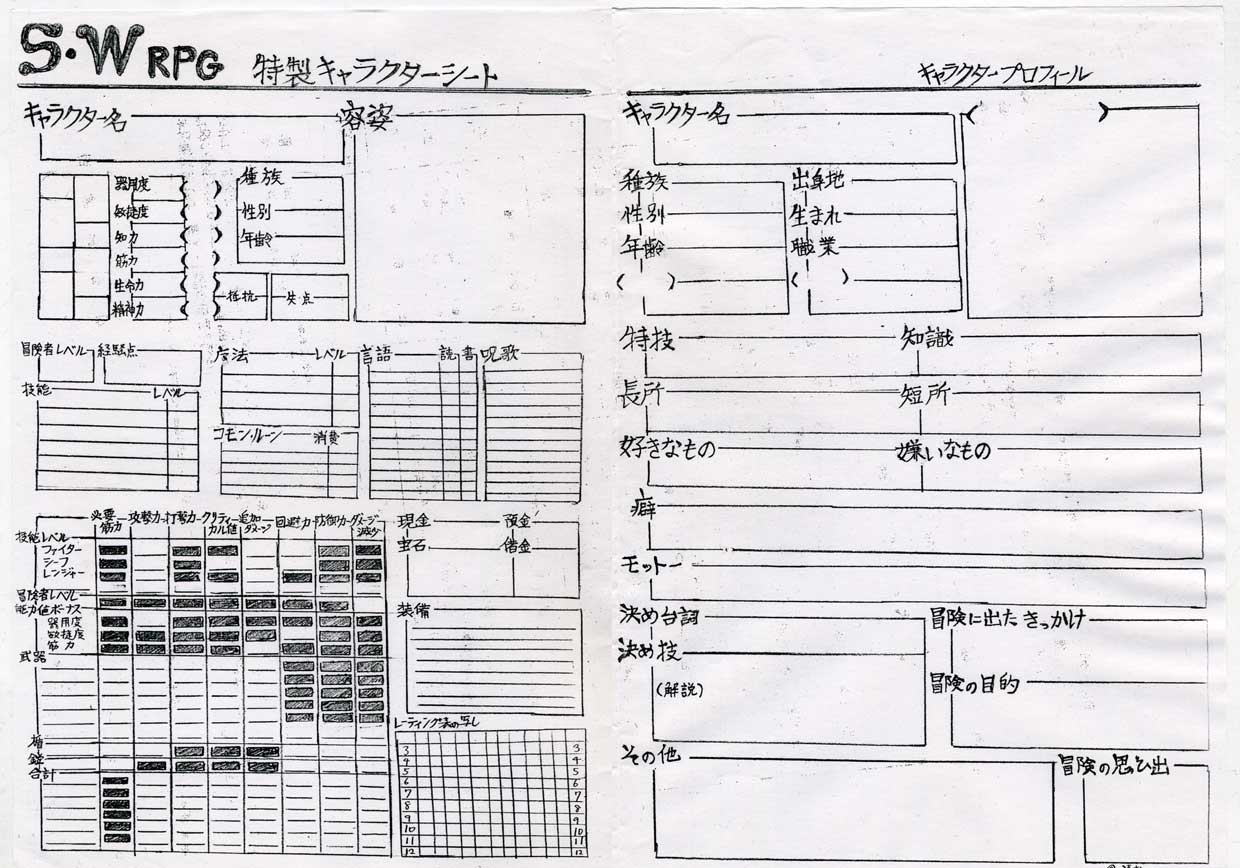 S・W RPG 特製キャラクターシート
キャラクター名 容姿
器用度 ( )
敏捷度 ( )
知力 ( )
筋力 ( )
生命力 ( )
精神力 ( )
種族
性別
年齢
抵抗 失点
冒険者レベル 経験点
技能 レベル
魔法 レベル
コモン・ルーン 消費
言語 読 書
呪歌
必要筋力 攻撃力 打撃力 クリティーカル値 追加ダメージ 回避力 防御力 ダメージ減少
技能レベル
ファイター
シーフ
レンジャー
冒険者レベル
能力値ボーナス
器用度
敏捷度
筋力
武器
盾
鎧
合計
現金 預金
宝石 借金
装備
レーティング表の写し
3 3
4 4
5 5
6 6
7 7
8 8
9 9
10 10
11 11
12 12
キャラクタープロフィール
キャラクター名 ( )
種族 出身地
性別 生まれ
年齢 職業
( ) ( )
特技 知識
長所 短所
好きなもの 嫌いなもの
癖
モットー
決め台詞
決め技
(解説)
冒険に出たきっかけ
冒険の目的
その他
冒険の思ひ出